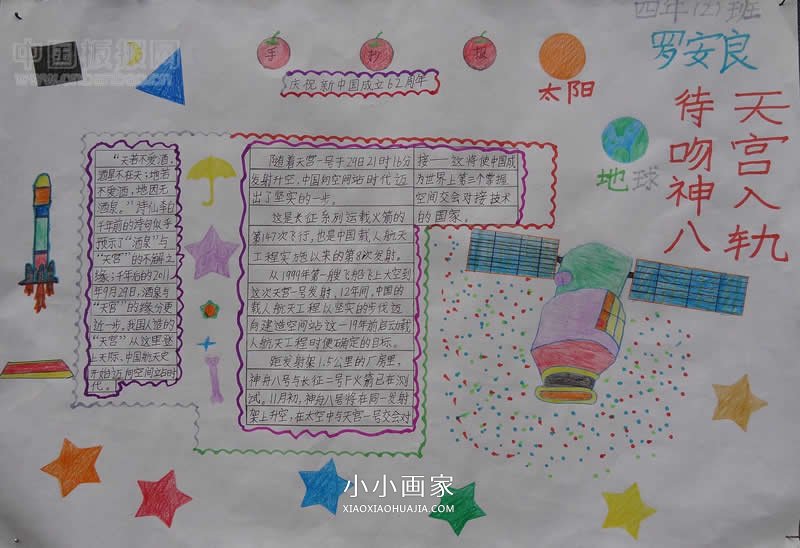 四年(2)班
罗安良
手抄报
庆祝新中国成立62周年
太阳
地球
天宫入轨
待吻神八
“天若不爱酒，
酒星不在天；地若
不爱酒，地因无
酒泉。”诗仙李白
千年前的诗句似乎
预示了“酒泉”与
“天宫”的不解之
缘；千年后的2011
年9月29日，酒泉与
“天宫”的缘分更
近一步。我国人造的
“天宫”从这里登
上天际，中国航天史
开始迈向空间站时
代。
随着天宫一号于29日21时16分
发射升空，中国向空间站时代迈
出了坚实的一步。
这是长征系列运载火箭的
第147次飞行，也是中国载人航天
工程实施以来的第8次发射。
从1999年第一艘飞船飞上太空到
这次天宫一号发射，12年间，中国的
载人航天工程以坚实的步伐迈
向建造空间站这一19年前启动载
人航天工程时便确定的目标。
距发射架1.5公里的厂房里，
神舟八号与长征二号F火箭已在测
试。11月初，神舟八号将在同一发射
架上升空，在太空中与天宫一号交会对
接——这将使中国成
为世界上第三个掌握
空间交会对接技术
的国家。
小小画家
XIAOXIAOHUAJIA.COM